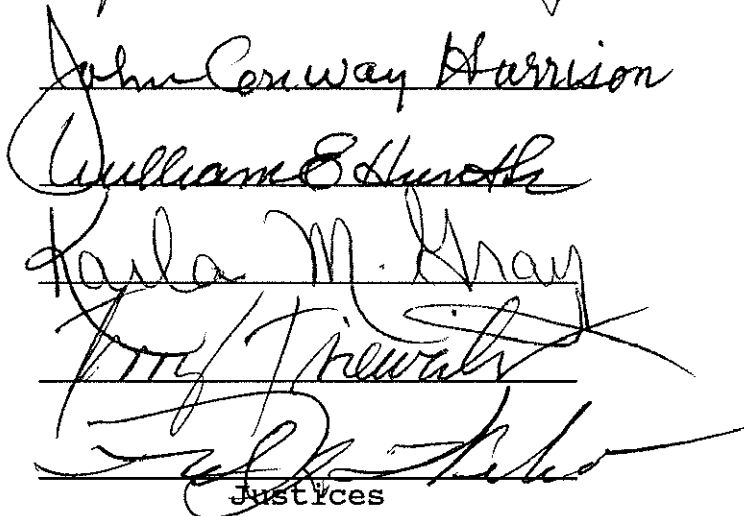 John Conway Harrison
William E Hunth
Karla M. Gray
Terry Trieweiler
Justices